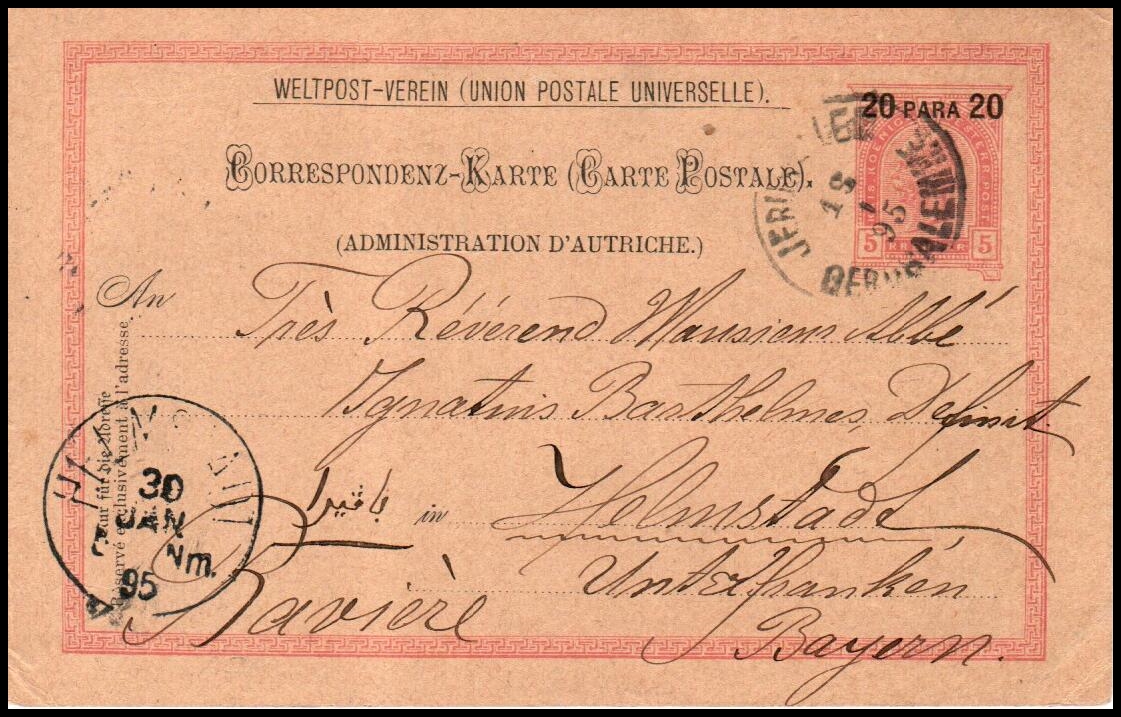 WELTPOST-VEREIN (UNION POSTALE UNIVERSELLE).
20 PARA 20
CORRESPONDENZ-KARTE (CARTE POSTALE).
(ADMINISTRATION D'AUTRICHE.)
18
95
5 5
An
Très Révérend Monsieur Abbé
Ignatius Barthelmes Definit.
بافيرا in Helmstadt
Unterfranken
Bavière
Bayern.
Nur für die Adresse
Réservé exclusivement à l'adresse
30
JAN
Nm.
95